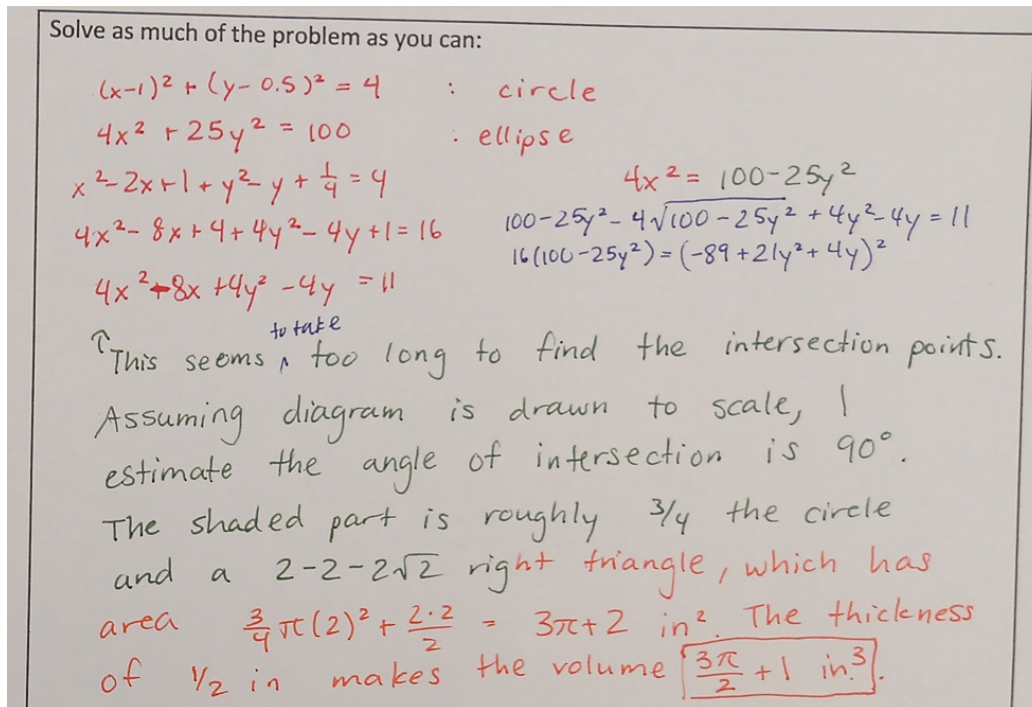 Solve as much of the problem as you can:
(x-1)² + (y-0.5)² = 4 : circle
4x² + 25y² = 100 : ellipse
x²-2x+1+y²-y+¼=4
4x²=100-25y²
4x²-8x+4+4y²-4y+1=16
100-25y²-4√(100-25y²)+4y²-4y=11
16(100-25y²)=(-89+21y²+4y)²
4x²-8x+4y²-4y=11
↑ This seems to take too long to find the intersection points.
Assuming diagram is drawn to scale, I
estimate the angle of intersection is 90°.
The shaded part is roughly 3/4 the circle
and a 2-2-2√2 right triangle, which has
area ¾π(2)² + 2·2/2 = 3π+2 in². The thickness
of 1/2 in makes the volume 3π/2 + 1 in.³.